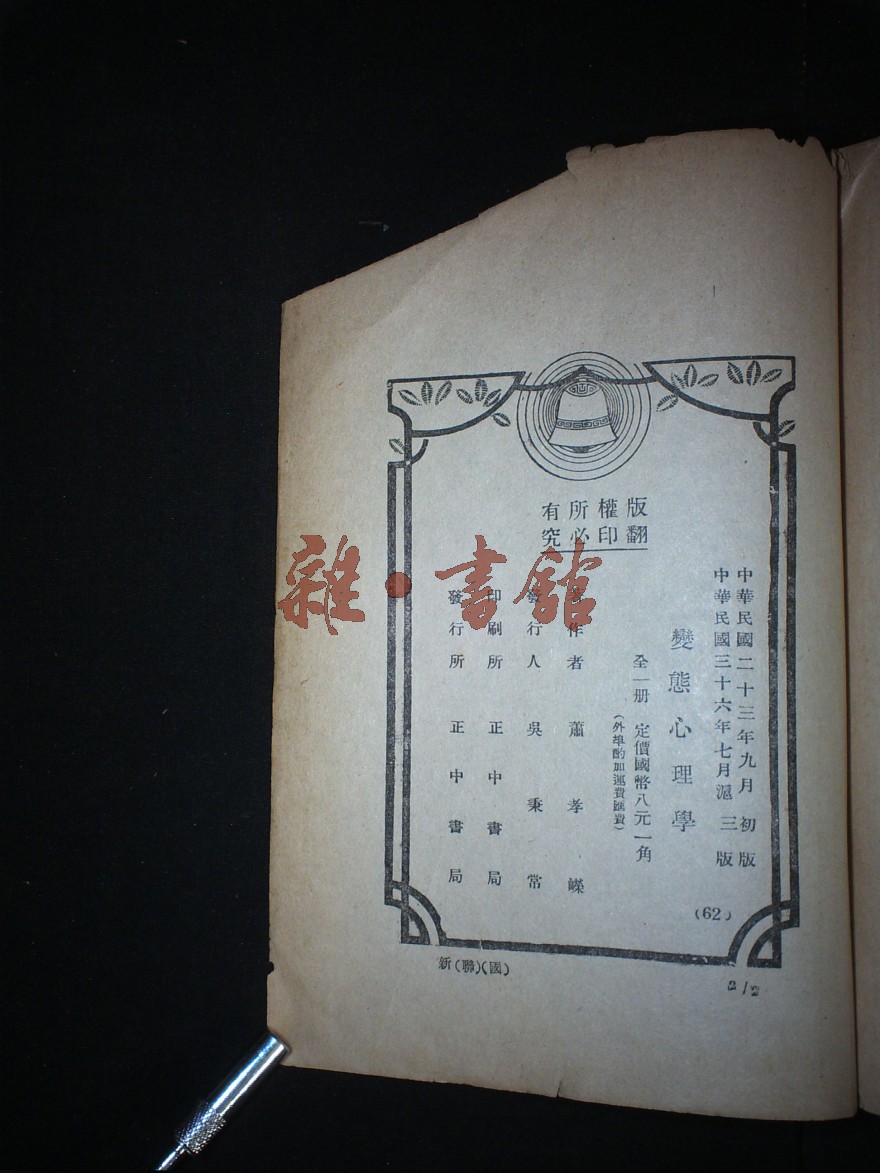 中華民國二十三年九月 初版
中華民國三十六年七月滬三版
(62)
變態心理學
全一册 定價國幣八元一角
(外埠酌加運費匯費)
版權所有
翻印必究
著作者 蕭孝嶸
發行人 吳秉常
印刷所 正中書局
發行所 正中書局
新(聯)(國)
2/2
雜·書館